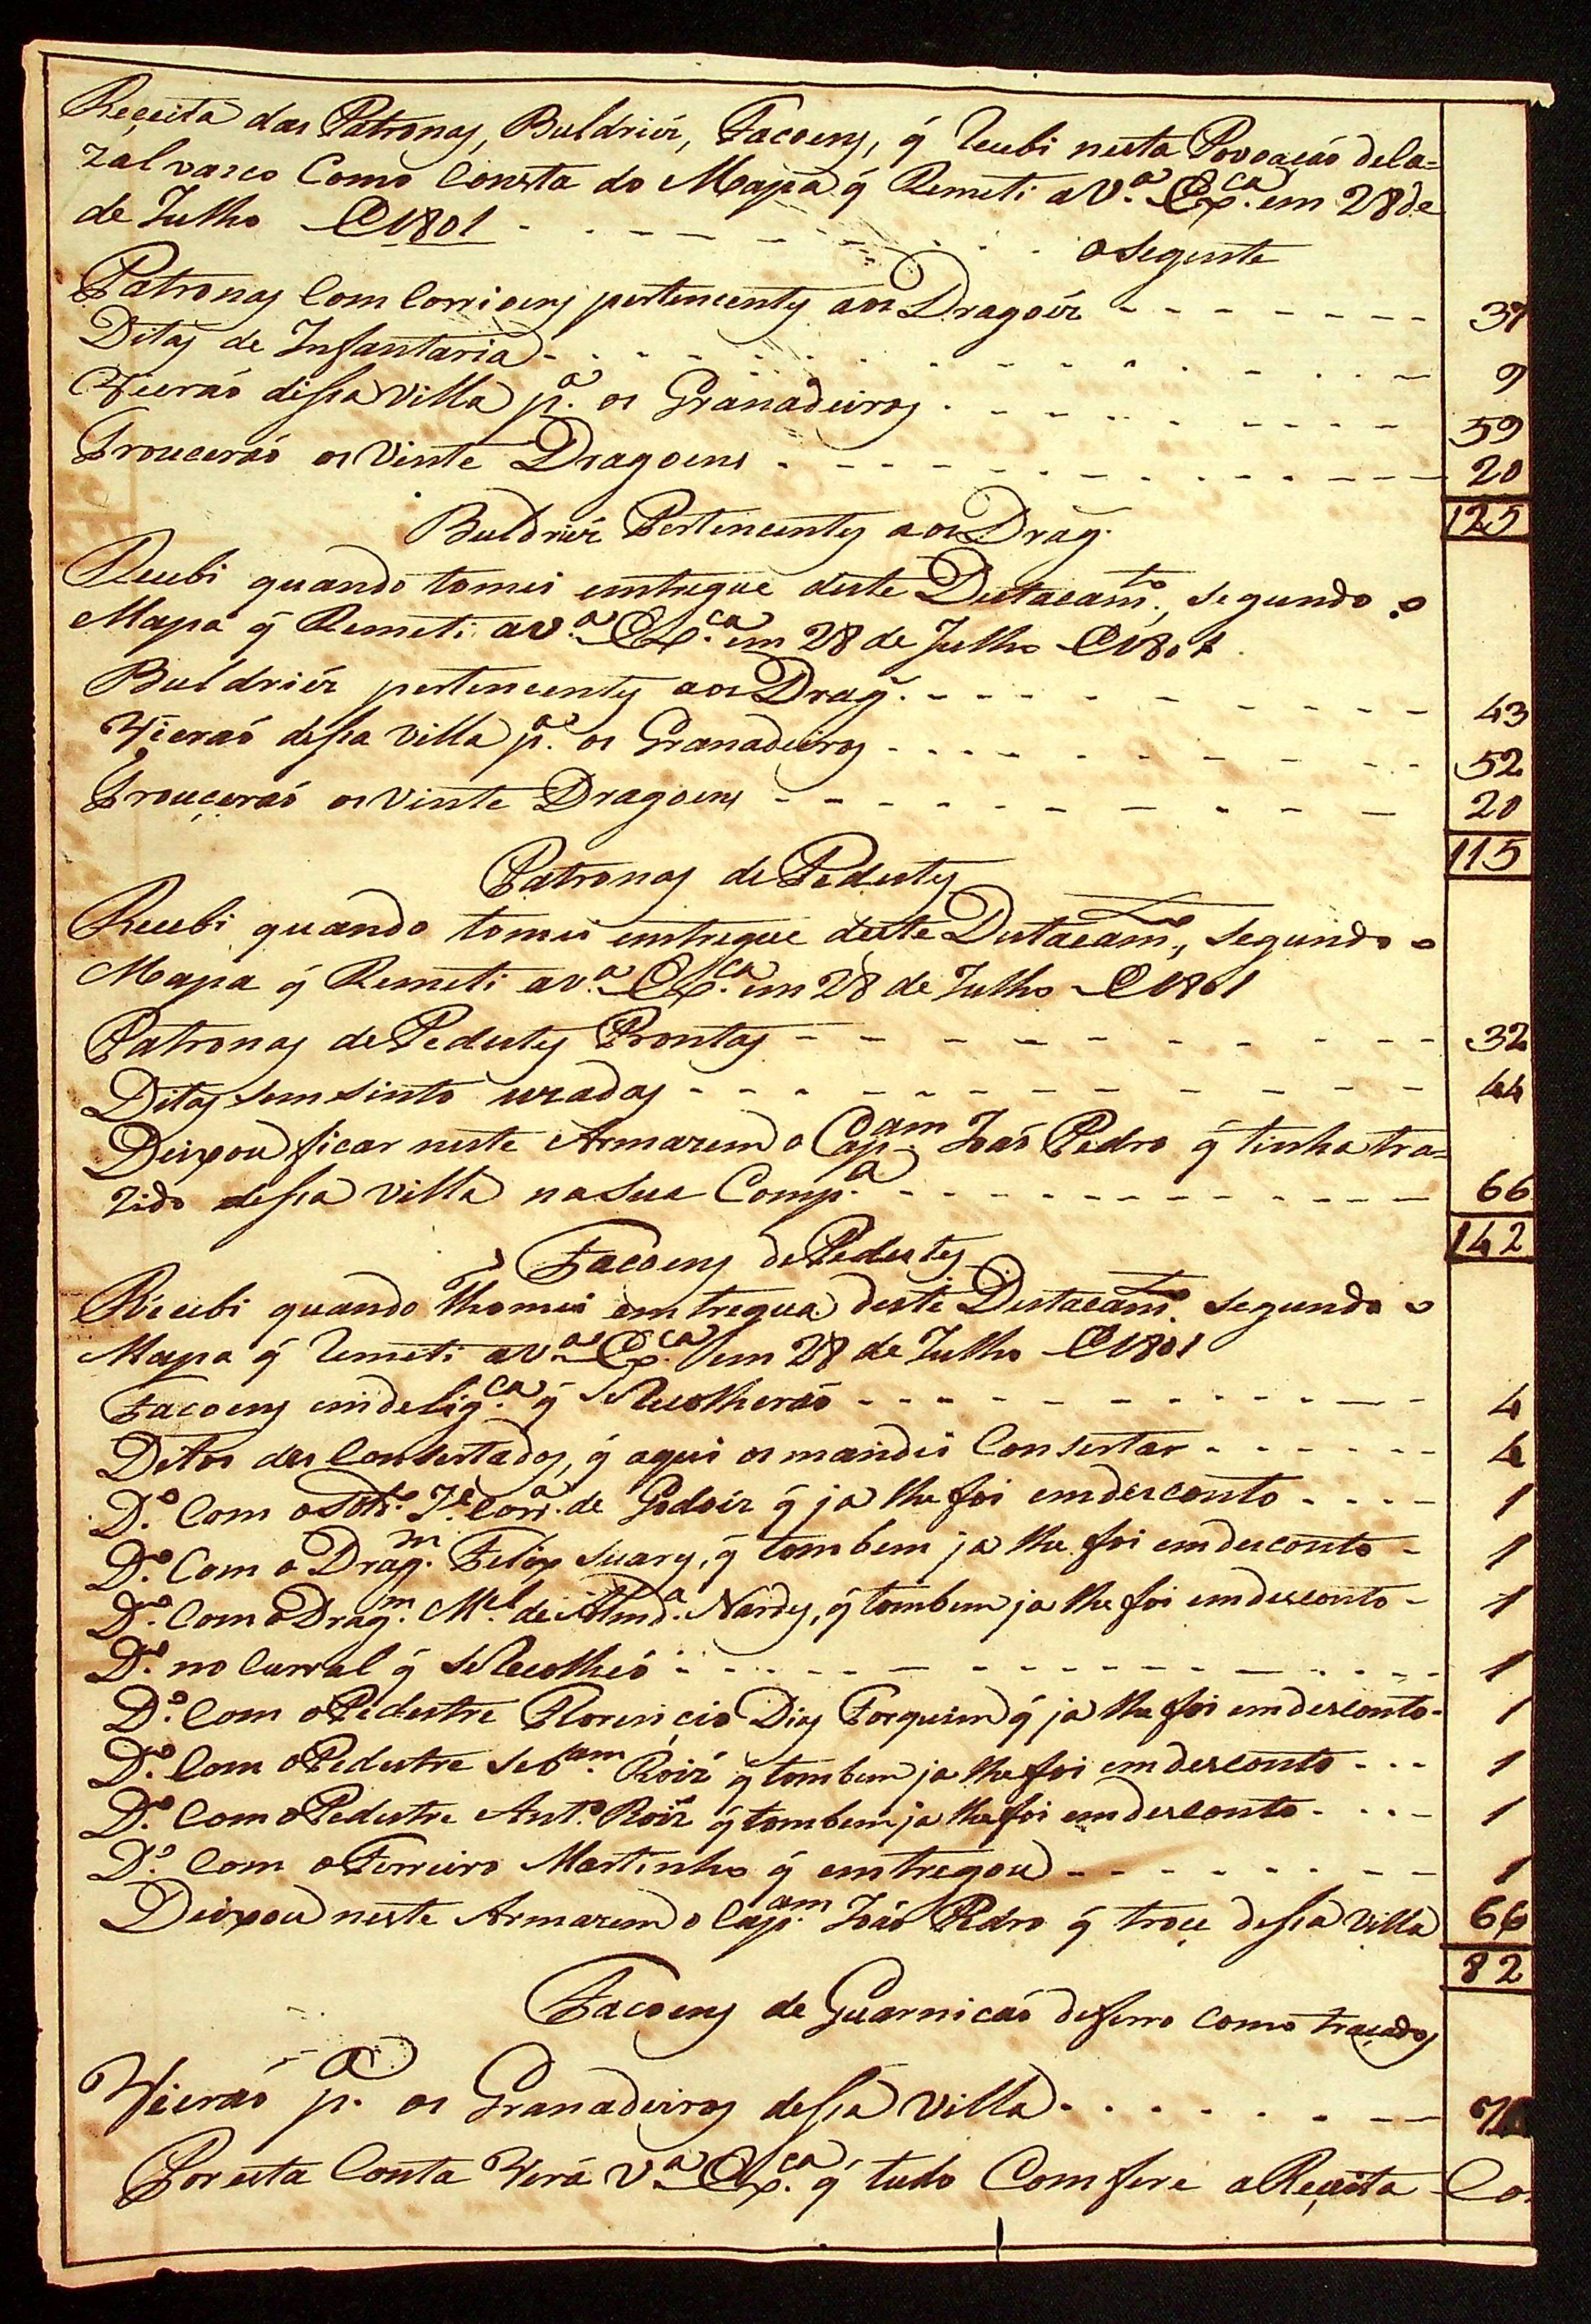 Reçeita das Patronas, Buldriés, Facoens, q̃ Recebi nesta Povoação deCa=
zalvasco Como Consta do Mapa q̃ Remeti a V.ª Ex.ca em 28 de
de Julho de 1801 - - - - - - - - - o Seguinte
Patronas Com Correoens pertencentes aos Dragoés - - - - - - - 37
Ditas de Infantaria - - - - - - - - - - - 9
Vierão dessa Villa p.ª os Granadeiros - - - - - - - - - 59
Troucerão os Vinte Dragoens - - - - - - - - - - 20
125
Buldriés Pertencentes aos Drag.
Recebi quando tomei emtregue deste Destacam.to, segundo o
Mapa q̃ Remeti a V.ª Ex.ca em 28 de Julho de 1801
Buldriés pertencentes aos Drag. - - - - - - - - - 43
Vierão dessa Villa p.ª os Granadeiros - - - - - - - - - 52
Trouçerão os Vinte Dragoens - - - - - - - - - 20
115
Patronas de Pedestes
Recebi quando tomei emtregue deste Destacam.to, segundo o
Mapa q̃ Remeti a V.ª Ex.ca em 28 de Julho de 1801
Patronas de Pedestes Prontas - - - - - - - - - - 32
Ditas sem sinto uzadas - - - - - - - - - - - 44
Deixou ficar neste Armazem o Cap.am João Pedro q̃ tinha tra=
zido dessa Villa na sua Comp.ª - - - - - - - - - - - 66
142
Facoens de Pedestes
Recebi quando thomei emtregua deste Destacam.to segundo o
Mapa q̃ Remeti a V.ª Ex.ca em 28 de Julho de 1801
Facoens em delig.ca q̃ se Recolherão - - - - - - - - - - - 4
Ditos des Consertados, q̃ aqui os mandei Consertar - - - - - - 4
D.º Com o Sold.º J.e Corr.ª de Godois q̃ ja lhe foi em desconto - - - - 1
D.º Com o Drag.m Felix Suares, q̃ tombem ja lhe foi em desconto - 1
D.º Com o Drag.m M.el de Almd.ª Nardes, q̃ tombem ja lhe foi em desconto - 1
D.º no Curral q̃ se Recolheo - - - - - - - - - - - - - 1
D.º Com o Pedestre Florençio Dias Forquim q̃ ja lhe foi em desconto - 1
D.º Com o Pedestre Seb.am Roiz q̃ tombem ja lhe foi em desconto - - - 1
D.º Com o Pedestre Ant.º Roiz q̃ tombem ja lhe foi em desconto - - - - 1
D.º Com o Ferreiro Martinho q̃ emtregou - - - - - - - - 1
Deixou neste Armazem o Cap.am João Pedro q̃ troçe dessa Villa 66
82
Facoens de Guarnicão de ferro Como traçados
Vierão p.ª os Granadeiros dessa Villa - - - - - - - -
Por esta Conta Verá V.ª Ex.ca q̃ tudo Comfere a Reçeita Co